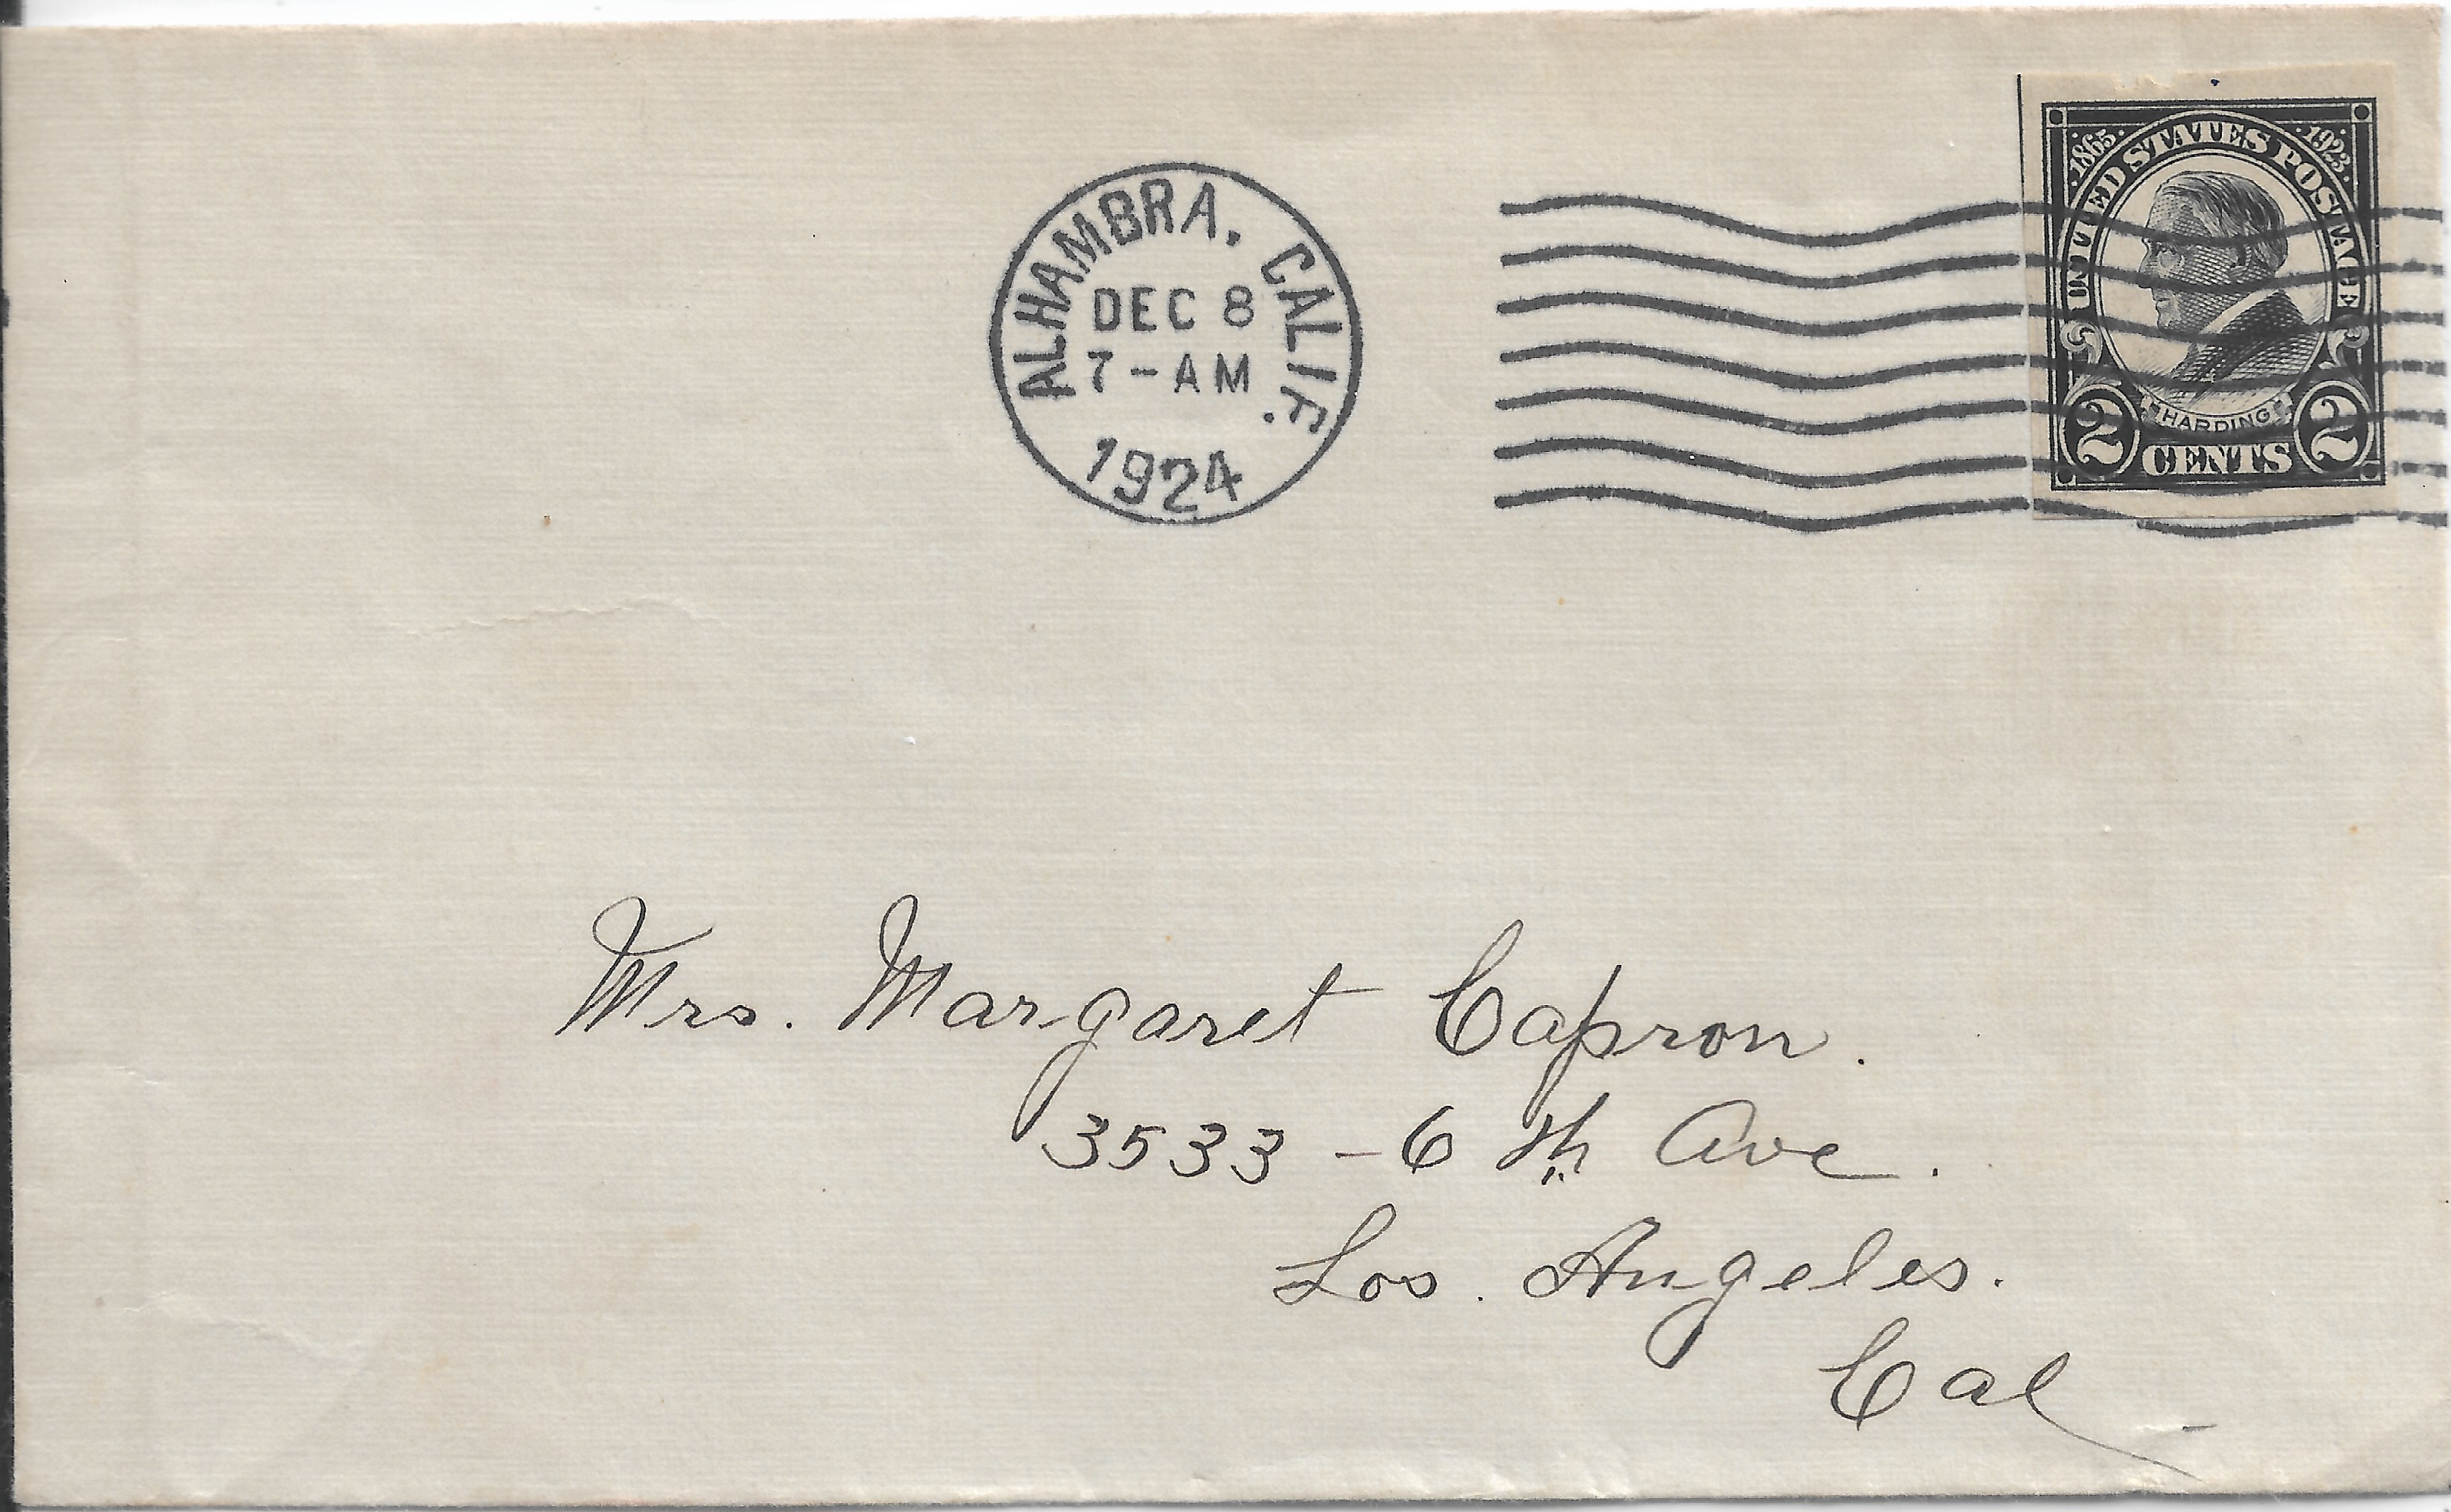 ALHAMBRA, CALIF.
DEC 8
7-AM
1924
1865 1923
UNITED STATES POSTAGE
HARDING
2 CENTS 2
Mrs. Margaret Capron.
3533 - 6th Ave.
Los. Angeles.
Cal